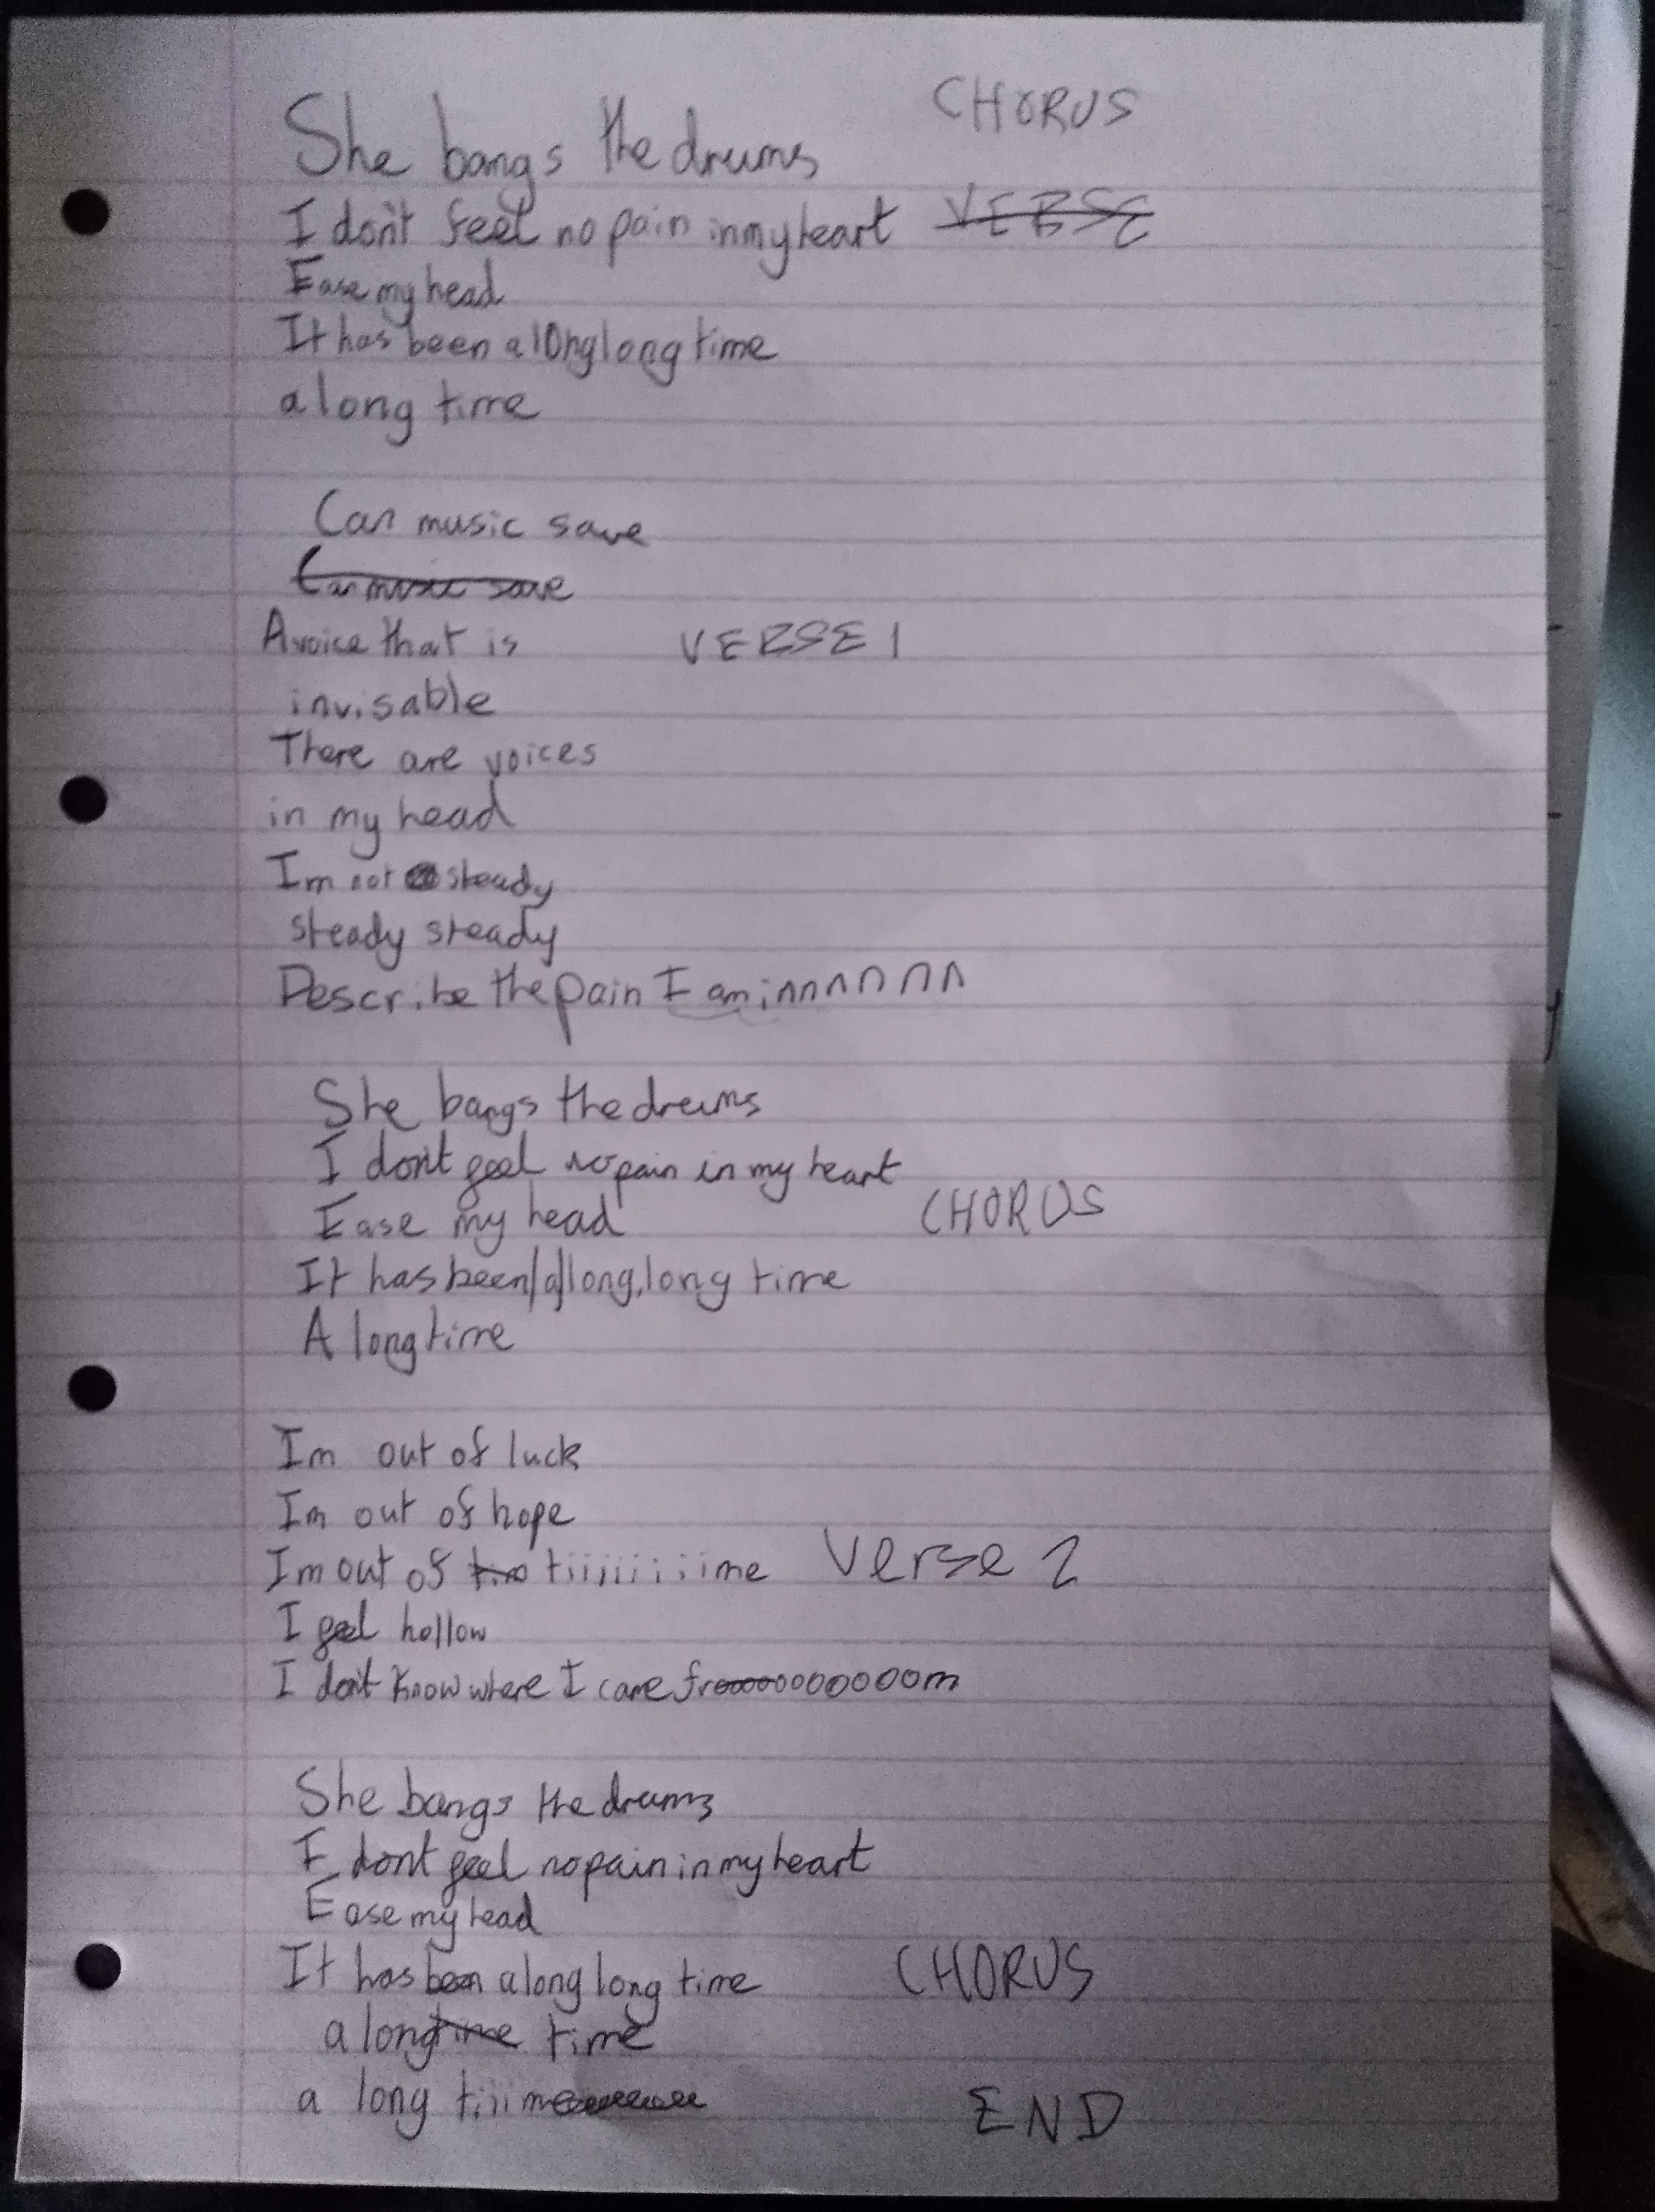 CHORUS
She bangs the drums
I don't feel no pain in my heart VERSE
Ease my head
It has been a long long time
a long time
Can music save
Can music save
A voice that is VERSE 1
invisable
There are voices
in my head
Im not steady
steady steady
Describe the pain I am innnnnnn
She bangs the drums
I don't feel no pain in my heart
Ease my head CHORUS
It has been a long, long time
A long time
Im out of luck
Im out of hope
Im out of tiiiiiiiime Verse 2
I feel hollow
I don't know where I came frooooooooooom
She bangs the drums
I dont feel no pain in my heart
Ease my head
It has been a long long time CHORUS
a long time time
a long tiiimeeeeeeee
END